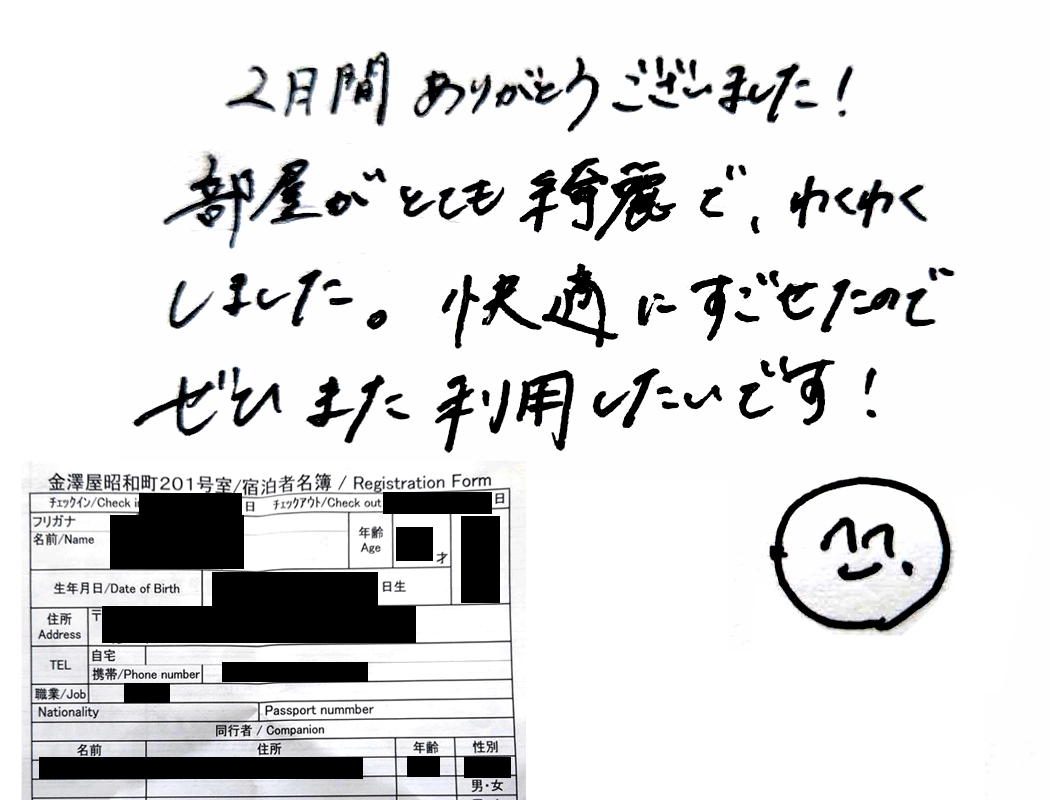 2日間ありがとうございました!
部屋がとても綺麗で、わくわく
しました。快適にすごせたので
ぜひまた利用したいです!
金澤屋昭和町201号室/宿泊者名簿 / Registration Form
チェックイン/Check i 日 チェックアウト/Check out 日
フリガナ
名前/Name 年齢 Age 才
生年月日/Date of Birth 日生
住所 Address 〒
TEL 自宅
携帯/Phone number
職業/Job
Nationality Passport nummber
同行者 / Companion
名前 住所 年齢 性別
男・女